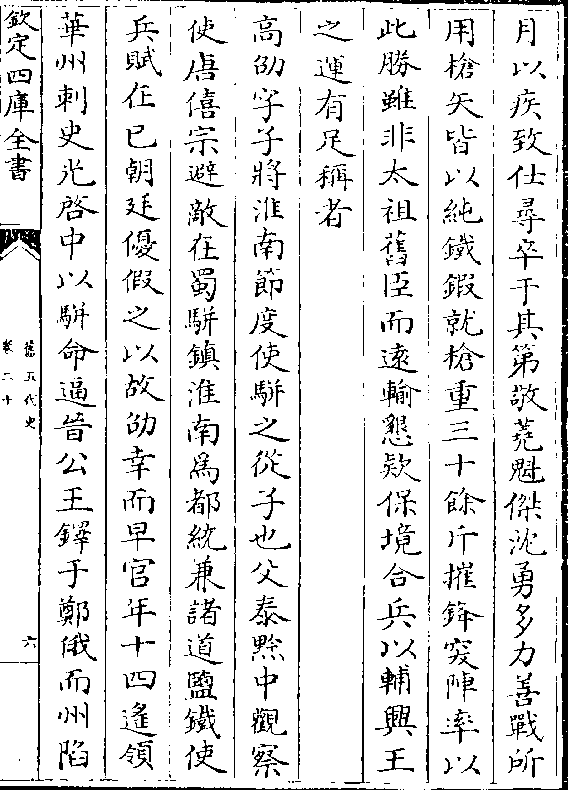 月以疾致仕尋卒于其第敬蕘魁傑沈勇多力善戰所
用槍矢皆以純鐵鍜就槍重三十餘斤摧鋒突陣率以
此勝雖非太祖舊臣而遠輸懇欵保境合兵以輔興王
之運有足稱者
高劭字子將淮南節度使駢之從子也父泰黔中觀察
使唐僖宗避敵在蜀駢鎮淮南為都統兼諸道鹽鐵使
兵賦在已朝廷優假之以故劭幸而早官年十四遙領
華州刺史光啓中以駢命逼晉公王鐸于鄭俄而州陷
欽定四庫全書
舊五代史
卷二十
六